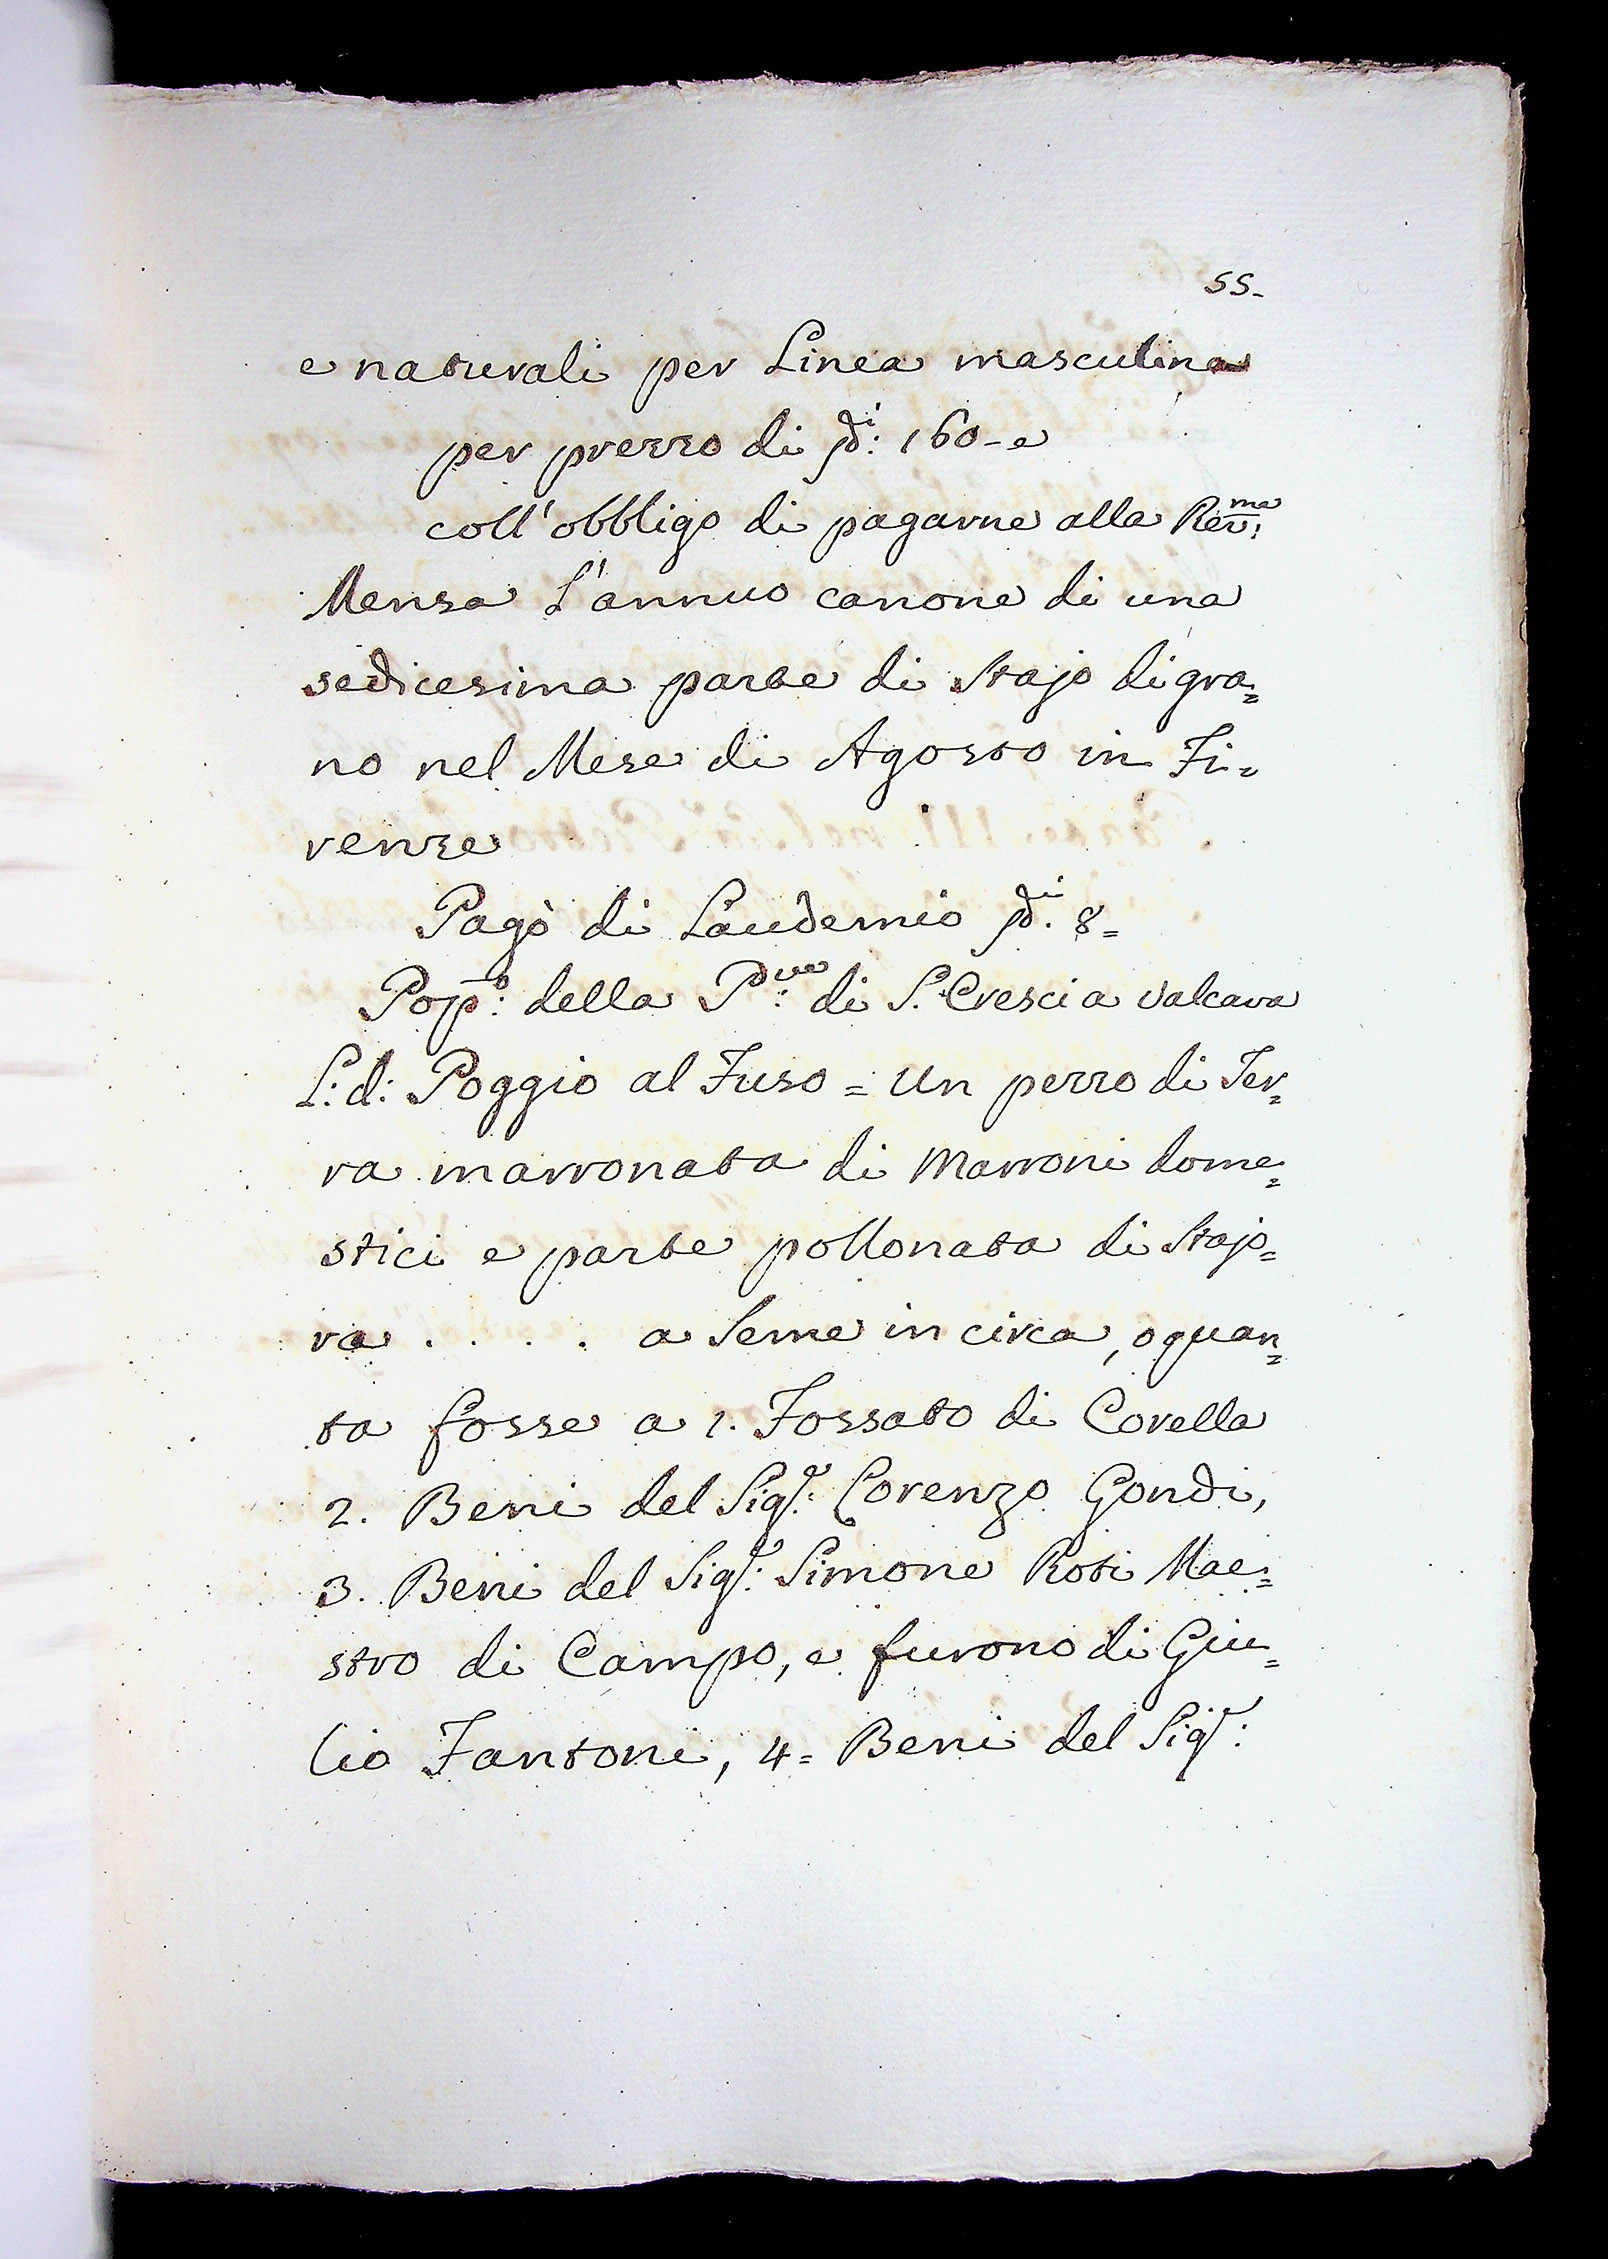 55-
e naturali per Linea masculina
per prezzo di ∫di: 160-e
coll'obbligo di pagarne alla Rev:ma
Mensa L'annuo canone di una
sedicesima parte di Stajo di gra=
no nel Mese di Agosto in Fi=
renze
Pagò di Laudemio ∫di. 8=
Popo: della P:ve di S. Cresci a Valcava
L: d: Poggio al Fuso = Un pezzo di Ter=
ra marronata di Marroni dome=
stici e parte pollonata di Stajo=
ra . . . . a Seme in circa, o quan=
ta fosse a 1. Fossato di Corella
2. Beni del Sigr: Lorenzo Gondi,
3. Beni del Sigr: Simone Roti Mae=
stro di Campo, e furono di Giu=
lio Fantoni, 4= Beni del Sigr: